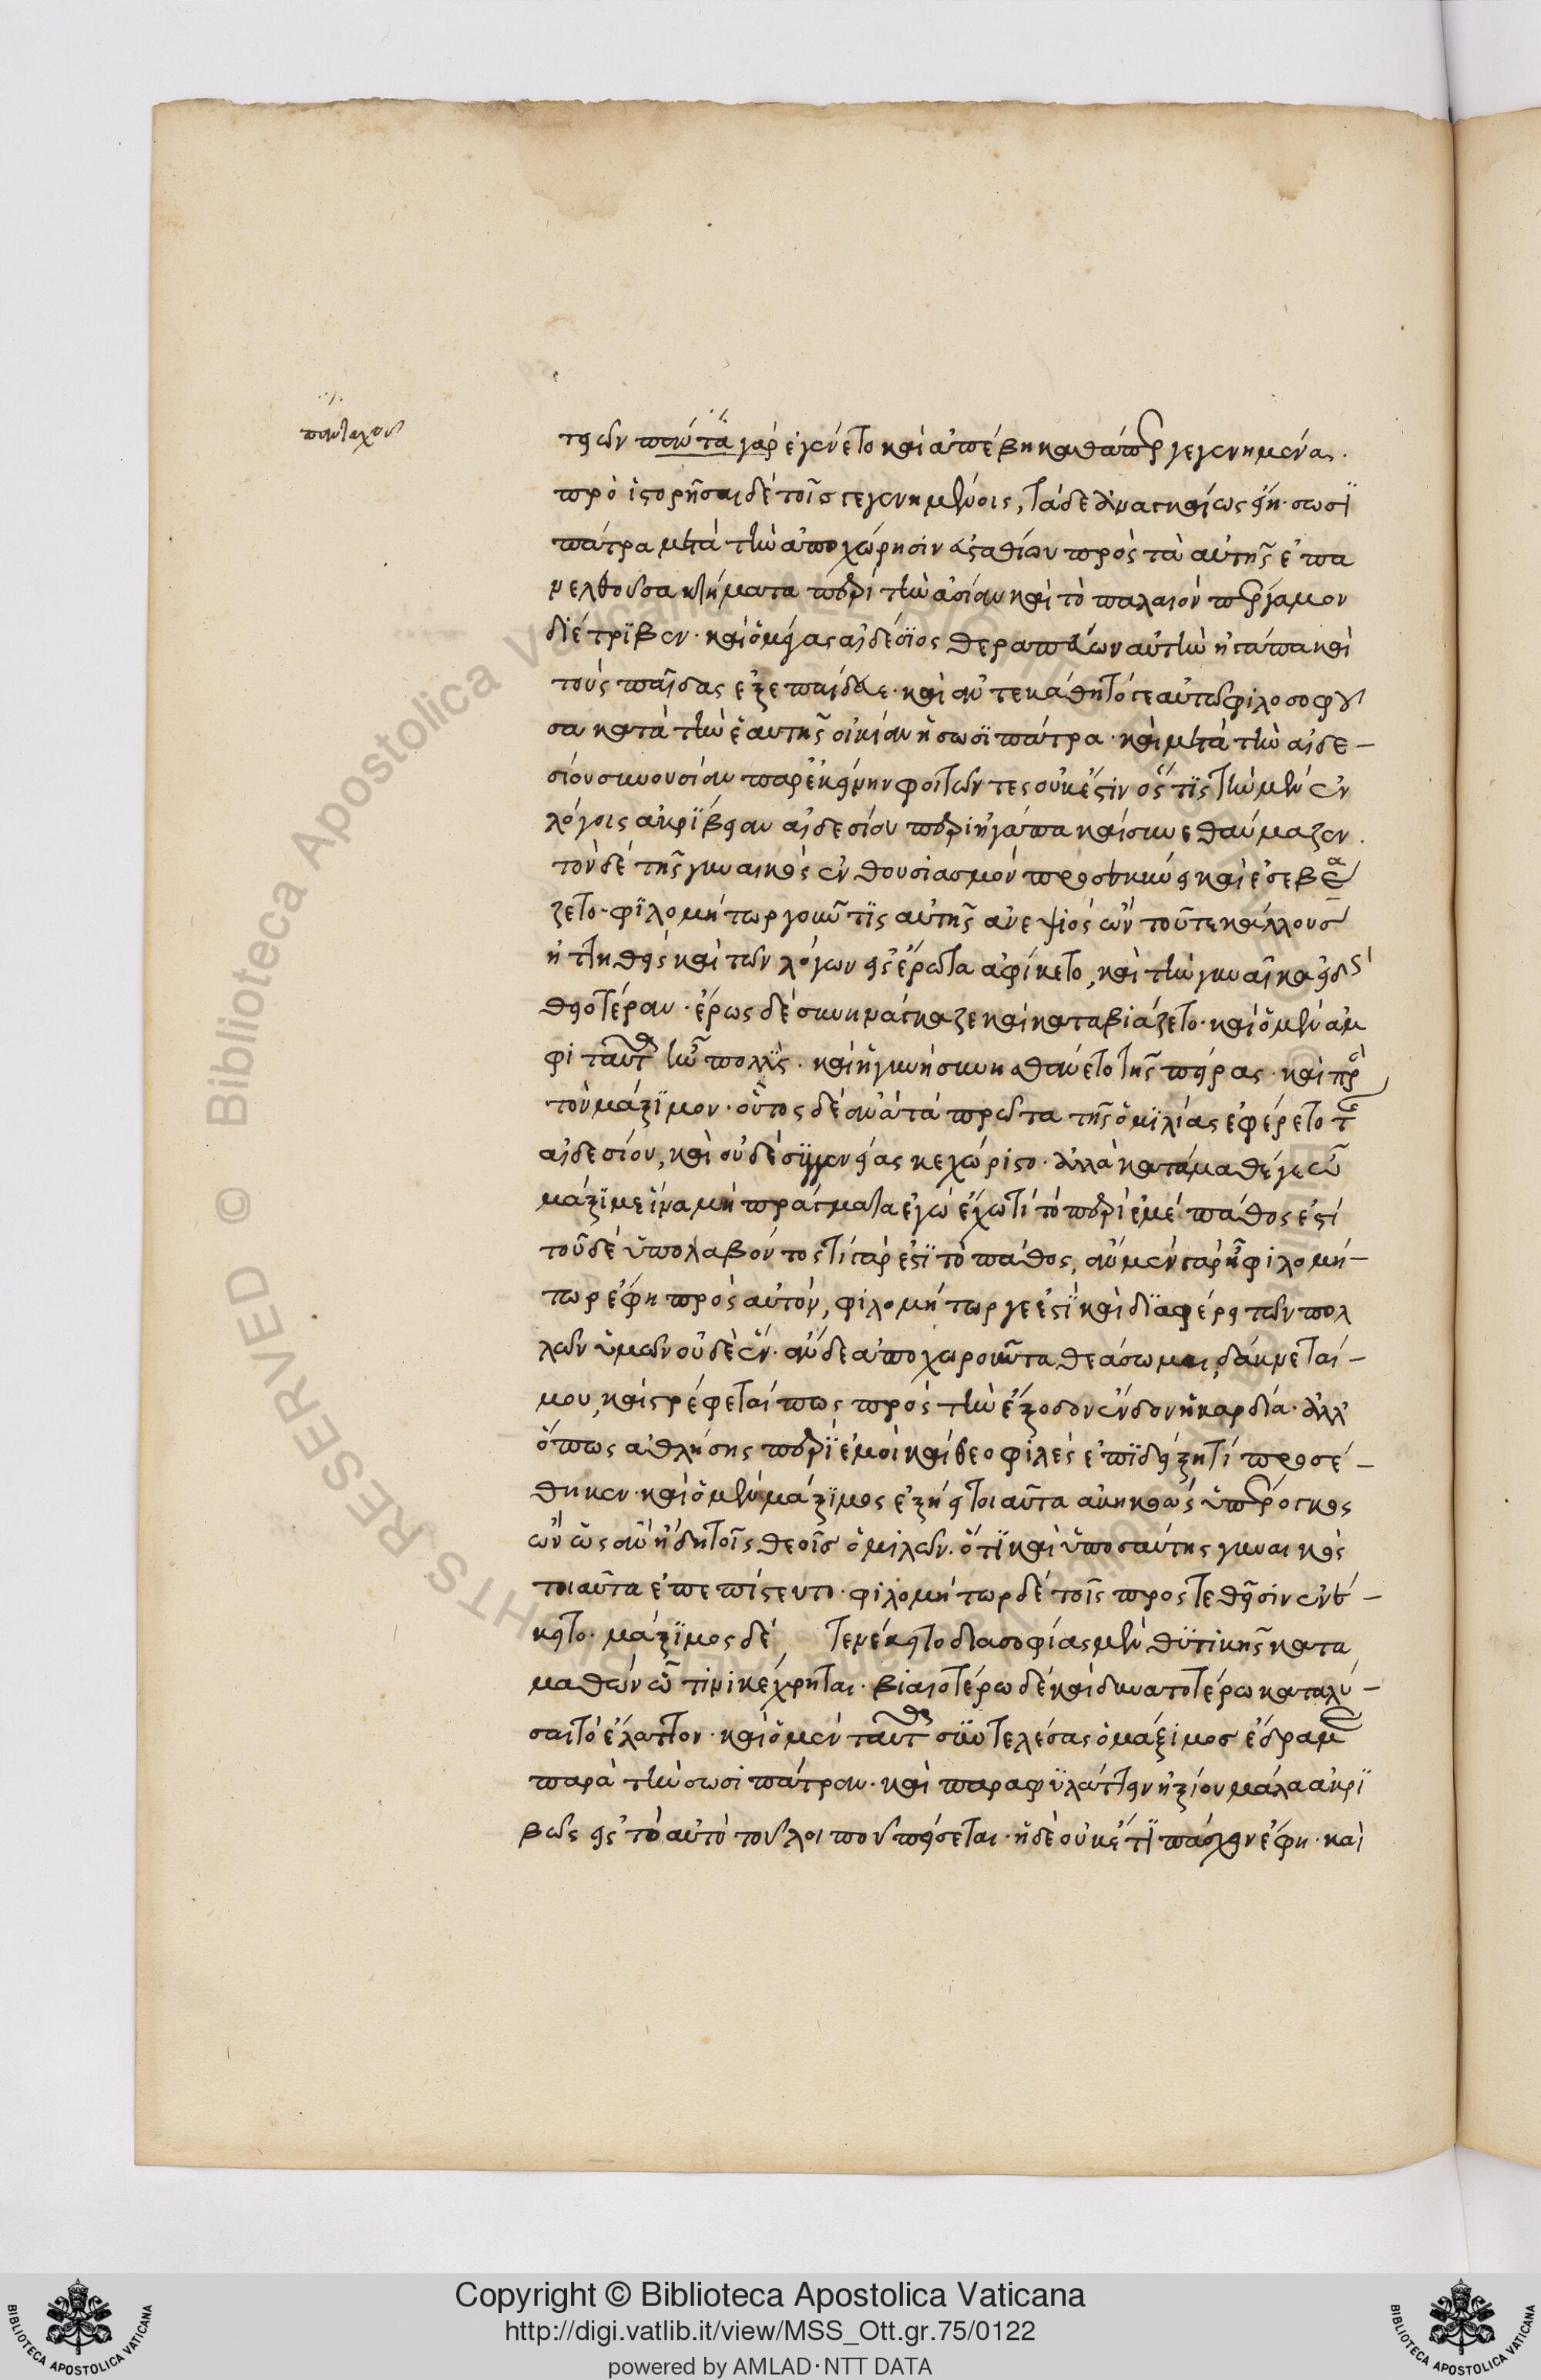 πανταχοῦ
τῳῶν πάντα γάρ ἐγένετο καὶ ἀπέβη καθάπερ γεγενημένα.
προϊστορῆσαι δὲ τοῖς γεγενημένοις, τάδε ἀναγκαίως ἔχει. σωσι
πάτρα μετὰ τὴν ἀποχώρησιν εὐσταθίου πρὸς τὰ αὐτῆς ἐπα
νελθοῦσα κτήματα περὶ τὴν ἀσίαν καὶ τὸ παλαιὸν πέργαμον
διέτριβεν. καὶ ὁ μέγας αἰδέσιος θεραπεύων αὐτὴν ἠγάπα καὶ
τοὺς παῖδας ἐξεπαίδευε. καὶ ἀντεκάθητό γε αὐτῷ φιλοσοφοῦ
σα κατὰ τὴν ἑαυτῆς οἰκίαν ἡ σωσιπάτρα. καὶ μετὰ τὴν αἰδε-
σίου συνουσίαν παρ' ἐκείνην φοιτῶντες οὐκ ἔστιν ὅς τις τὴν μὲν ἐν
λόγοις ἀκρίβειαν αἰδεσίου περιηγάπα καὶ συνεθαύμαζεν.
τὸν δὲ τῆς γυναικὸς ἐνθουσιασμὸν προσεκύνει καὶ ἐσεβά
ζετο. φιλομήτωρ γοῦν τις αὐτῆς ἀνεψιὸς ὢν τοῦ τε κάλλους
ἡττηθεὶς καὶ τῶν λόγων εἰς ἔρωτα ἀφίκετο, καὶ τὴν γυναῖκα εἰδὼς
θειοτέραν. ἔρως δὲ συνηνάγκαζε καὶ κατεβιάζετο. καὶ ὁ μὲν ἀμ
φὶ ταῦτα ἦν πολύς. καὶ ἡ γυνὴ συνῃσθάνετο τῆς πείρας. καὶ πρὸς
τὸν μάξιμον. οὗτος δὲ ἀνὰ τὰ πρῶτα τῆς ὁμιλίας ἐφέρετο τοῦ
αἰδεσίου, καὶ οὐδὲ συγγενείας κεχώριστο. ἀλλὰ κατάμαθέ γε ὦ
μάξιμε ἵνα μὴ πράγματα ἐγὼ ἔχω τί τὸ περὶ ἐμὲ πάθος ἐστί
τοῦ δὲ ὑπολαβόντος τί γάρ ἐστι τὸ πάθος, ἂν μὲν παρῇ φιλομή-
τωρ ἔφη πρὸς αὐτόν, φιλομήτωρ γε ἐστὶ καὶ διαφέρει τῶν πολ
λῶν ὑμῶν οὐδὲ ἕν. ἂν δὲ ἀποχωροῦντα θεάσωμαι, δάκνεταί-
μου, καὶ στρέφεταί πως πρὸς τὴν ἔξοδον ἔνδον ἡ καρδία. ἀλλ'
ὅπως ἀθλήσῃς περὶ ἐμοὶ καὶ θεοφιλὲς ἐπιδείξῃ τί προσέ-
θηκεν. καὶ ὁ μὲν μάξιμος ἐξῄει τοιαῦτα ἀκηκοὼς ὑπέρογκος
ὢν ὡς ἂν ἤδη τοῖς θεοῖς ὁμιλῶν. ὅτι καὶ ὑπὸ σαύτης γυναικὸς
τοιαῦτα ἐπεπίστευτο. φιλομήτωρ δὲ τοῖς προστεθεῖσιν ἐνέ-
κειτο. μάξιμος δὲ τενέκειτο διὰ σοφίας μὲν θυτικῆς κατα
μαθὼν ᾧ τινι κέχρηται. βιαιοτέρῳ δὲ καὶ δυνατοτέρῳ καταλύ-
σαι τὸ ἔλαττον. καὶ ὁ μὲν ταῦτα συντελέσας ὁ μάξιμος ἔδραμεν
παρὰ τὴν σωσιπάτραν. καὶ παραφυλάττειν ἠξίου μάλα ἀκρι
βῶς εἰς τὸ αὐτὸ τοῦ λοιποῦ πείσεται. ἡ δὲ οὐκέτι πάσχειν ἔφη. καὶ
Copyright © Biblioteca Apostolica Vaticana
http://digi.vatlib.it/view/MSS_Ott.gr.75/0122
powered by AMLAD·NTT DATA